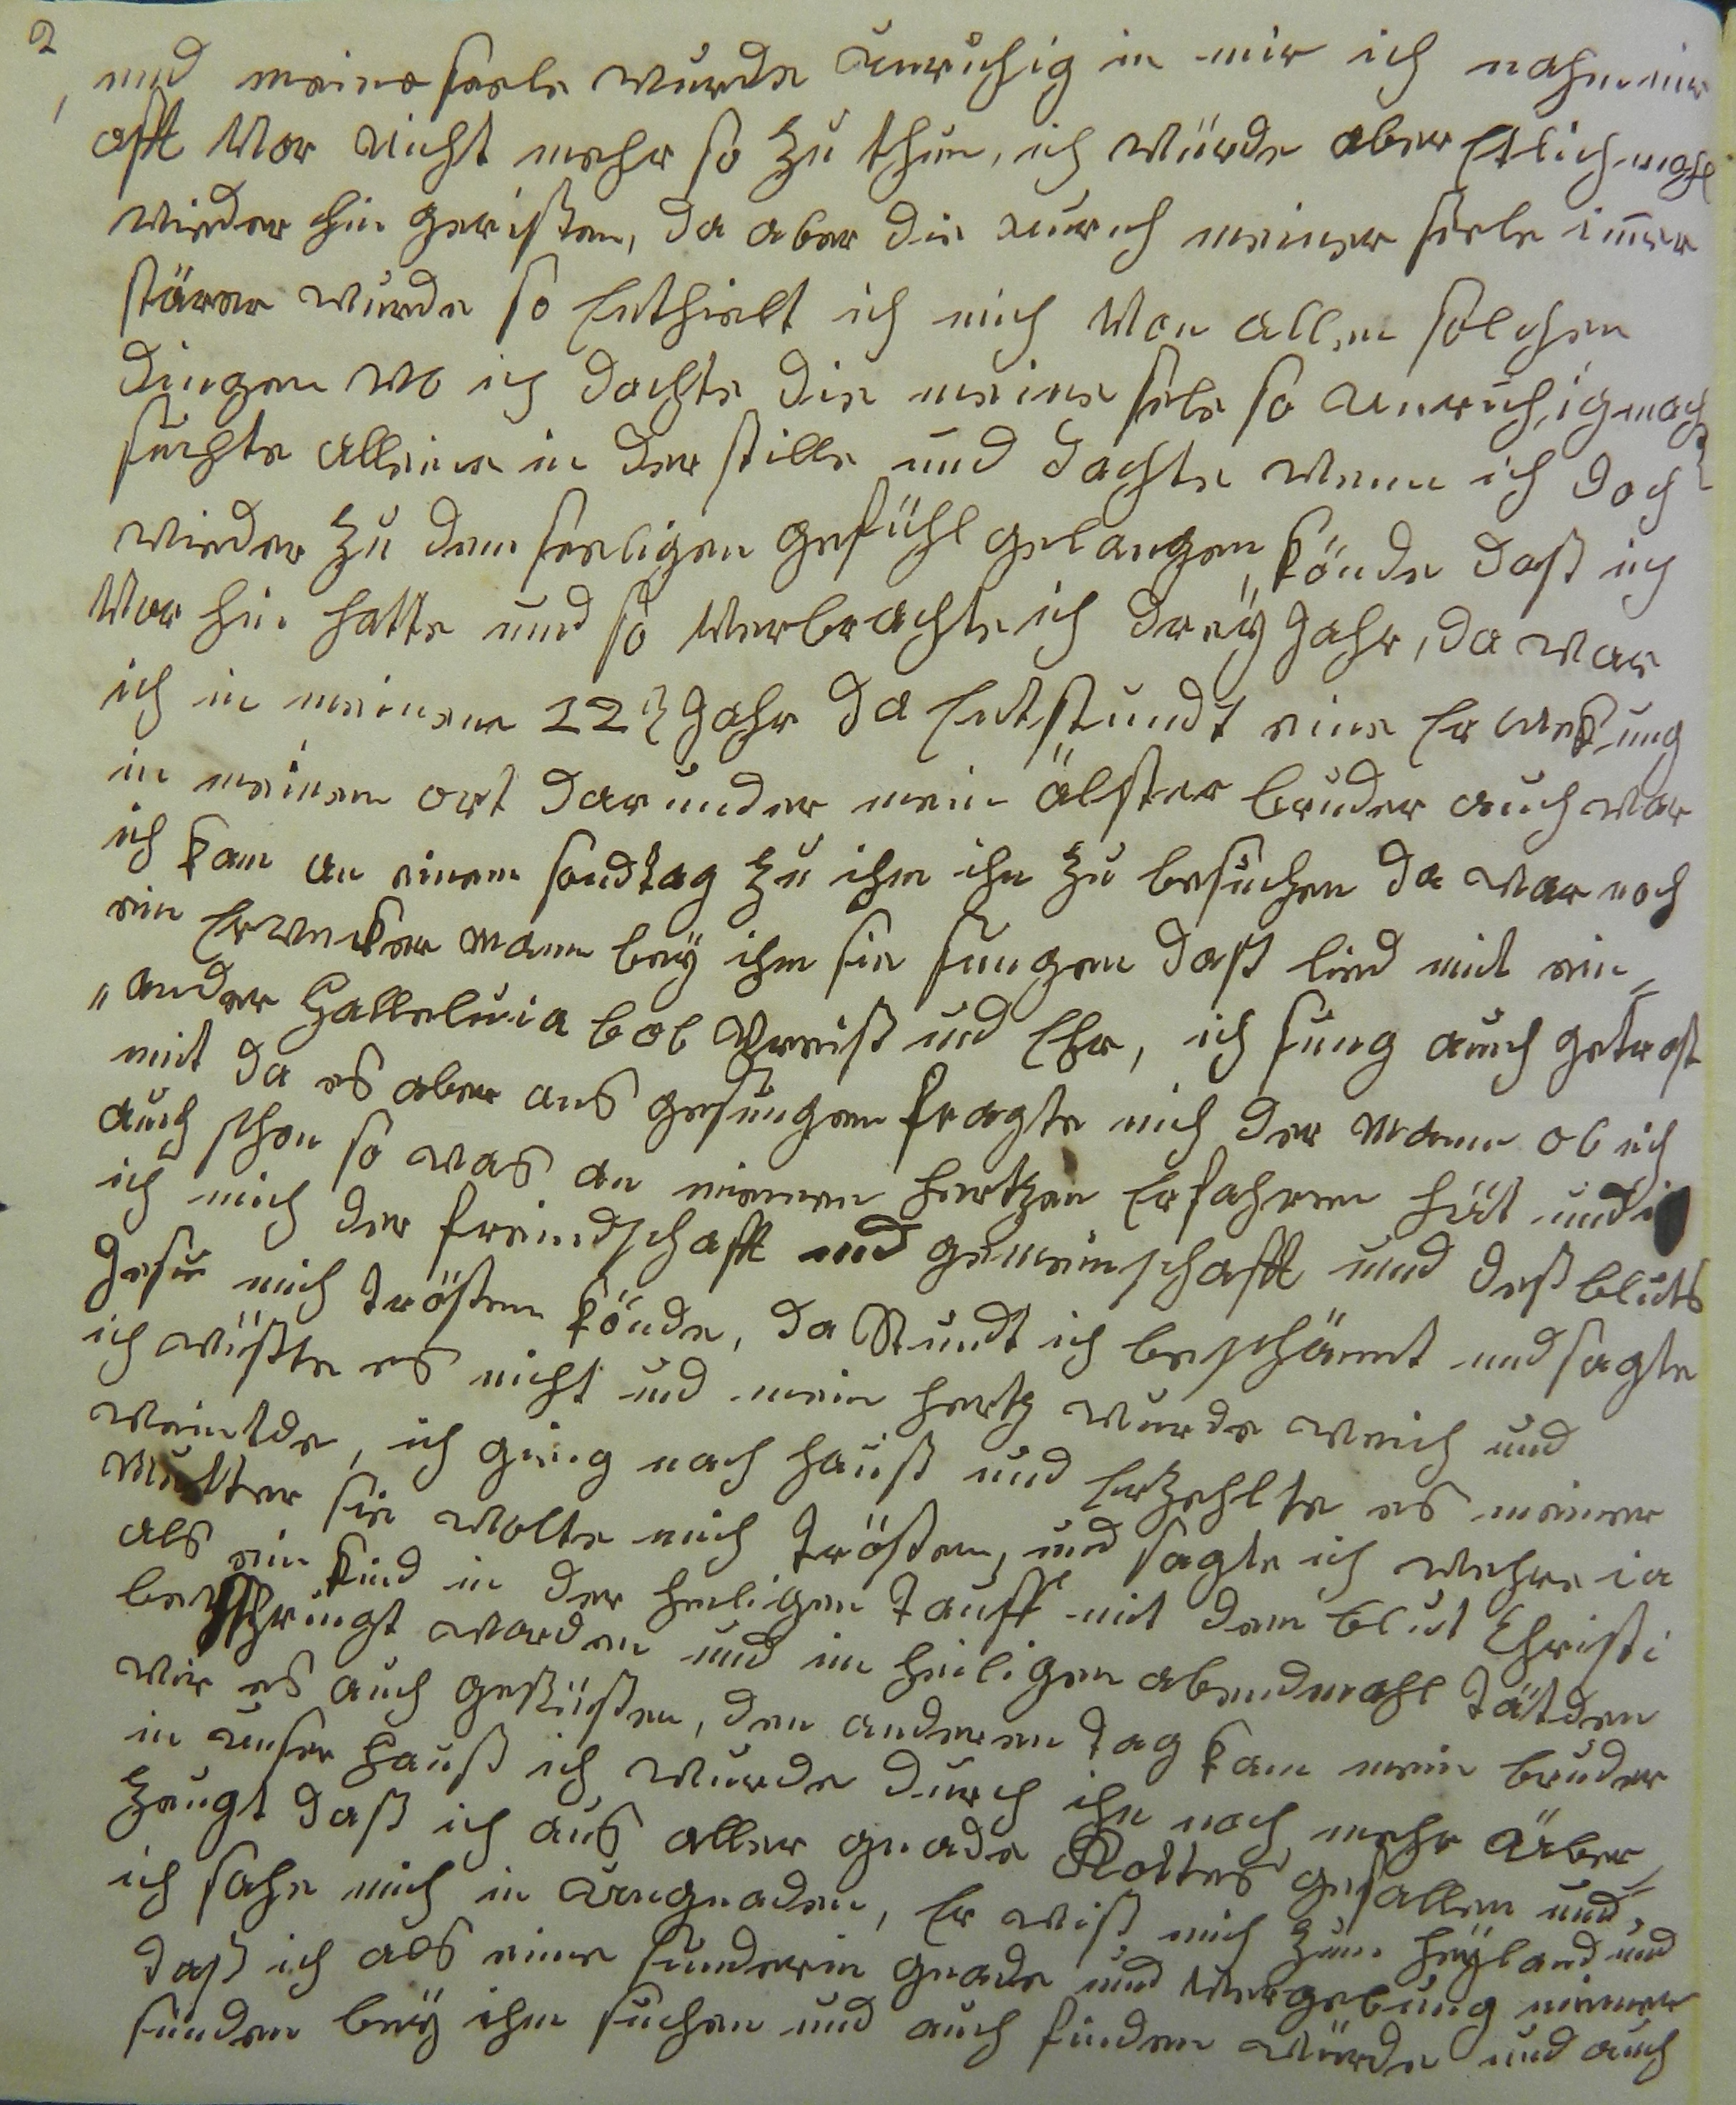 2
und meine seele wurde unruhig in mir ich nahm mir
offt Vor nicht mehr so zu thun, ich würde aber Etlich mahl
wieder hin gerissen, da aber die unruh meiner seele im̄er
stärer wurde so Enthielt ich mich Von allen solchen
dingen wo ich dachte die meine sele so unruhig mach
suchte alleine in der stille und dachte wenn ich doch
wieder zu dem seeligen gefühl gelangen könde dass ich
Vor hin hatte und so Verbrachte ich dreÿ Jahr, da war
ich in meinem 22 Jahr da Entstundt eine Er wekung
in meinem ort darunder mein älster bruder auch war
ich kam an einem sondtag zu ihm ihn zu besuchen da war noch
ein Erwecker mann beÿ ihm sie sungen dass lied mit ein„
„ander Halleluia lob Preiss und Ehr, ich sung auch getrost
mit da es aber aus gesungen fragte mich der mann ob ich
auch schon so was an meinen hertzen Erfahren hät und
ich mich der freindschafft und gemeinschafft und dess bluts
Jesu mich trösten könde, da Stundt ich beschämt und sagte
ich wüsste es nicht und mein hertz wurde weich und
weintde, ich ging nach hauss und Erzehlte es meiner
Mutter sie wolte mich trösten, und sagte ich wehre ia
als ein kind in der heiligen tauff mit dem blut Christi
worden und im heiligen abendmahl tätden
wir es auch genüssen, den anderen tag kam mein bruder
in unser hauss ich wurde durch ihn noch mehr über„
zeugt dass ich aus aller gnade Gottes gefallen und
ich sahe mich in ungnaden, Er wiss mich zum heÿland und
dass ich als eine sunderin gnade und Vergebung meiner
sünden beÿ ihm suchen und auch finden würde und auch